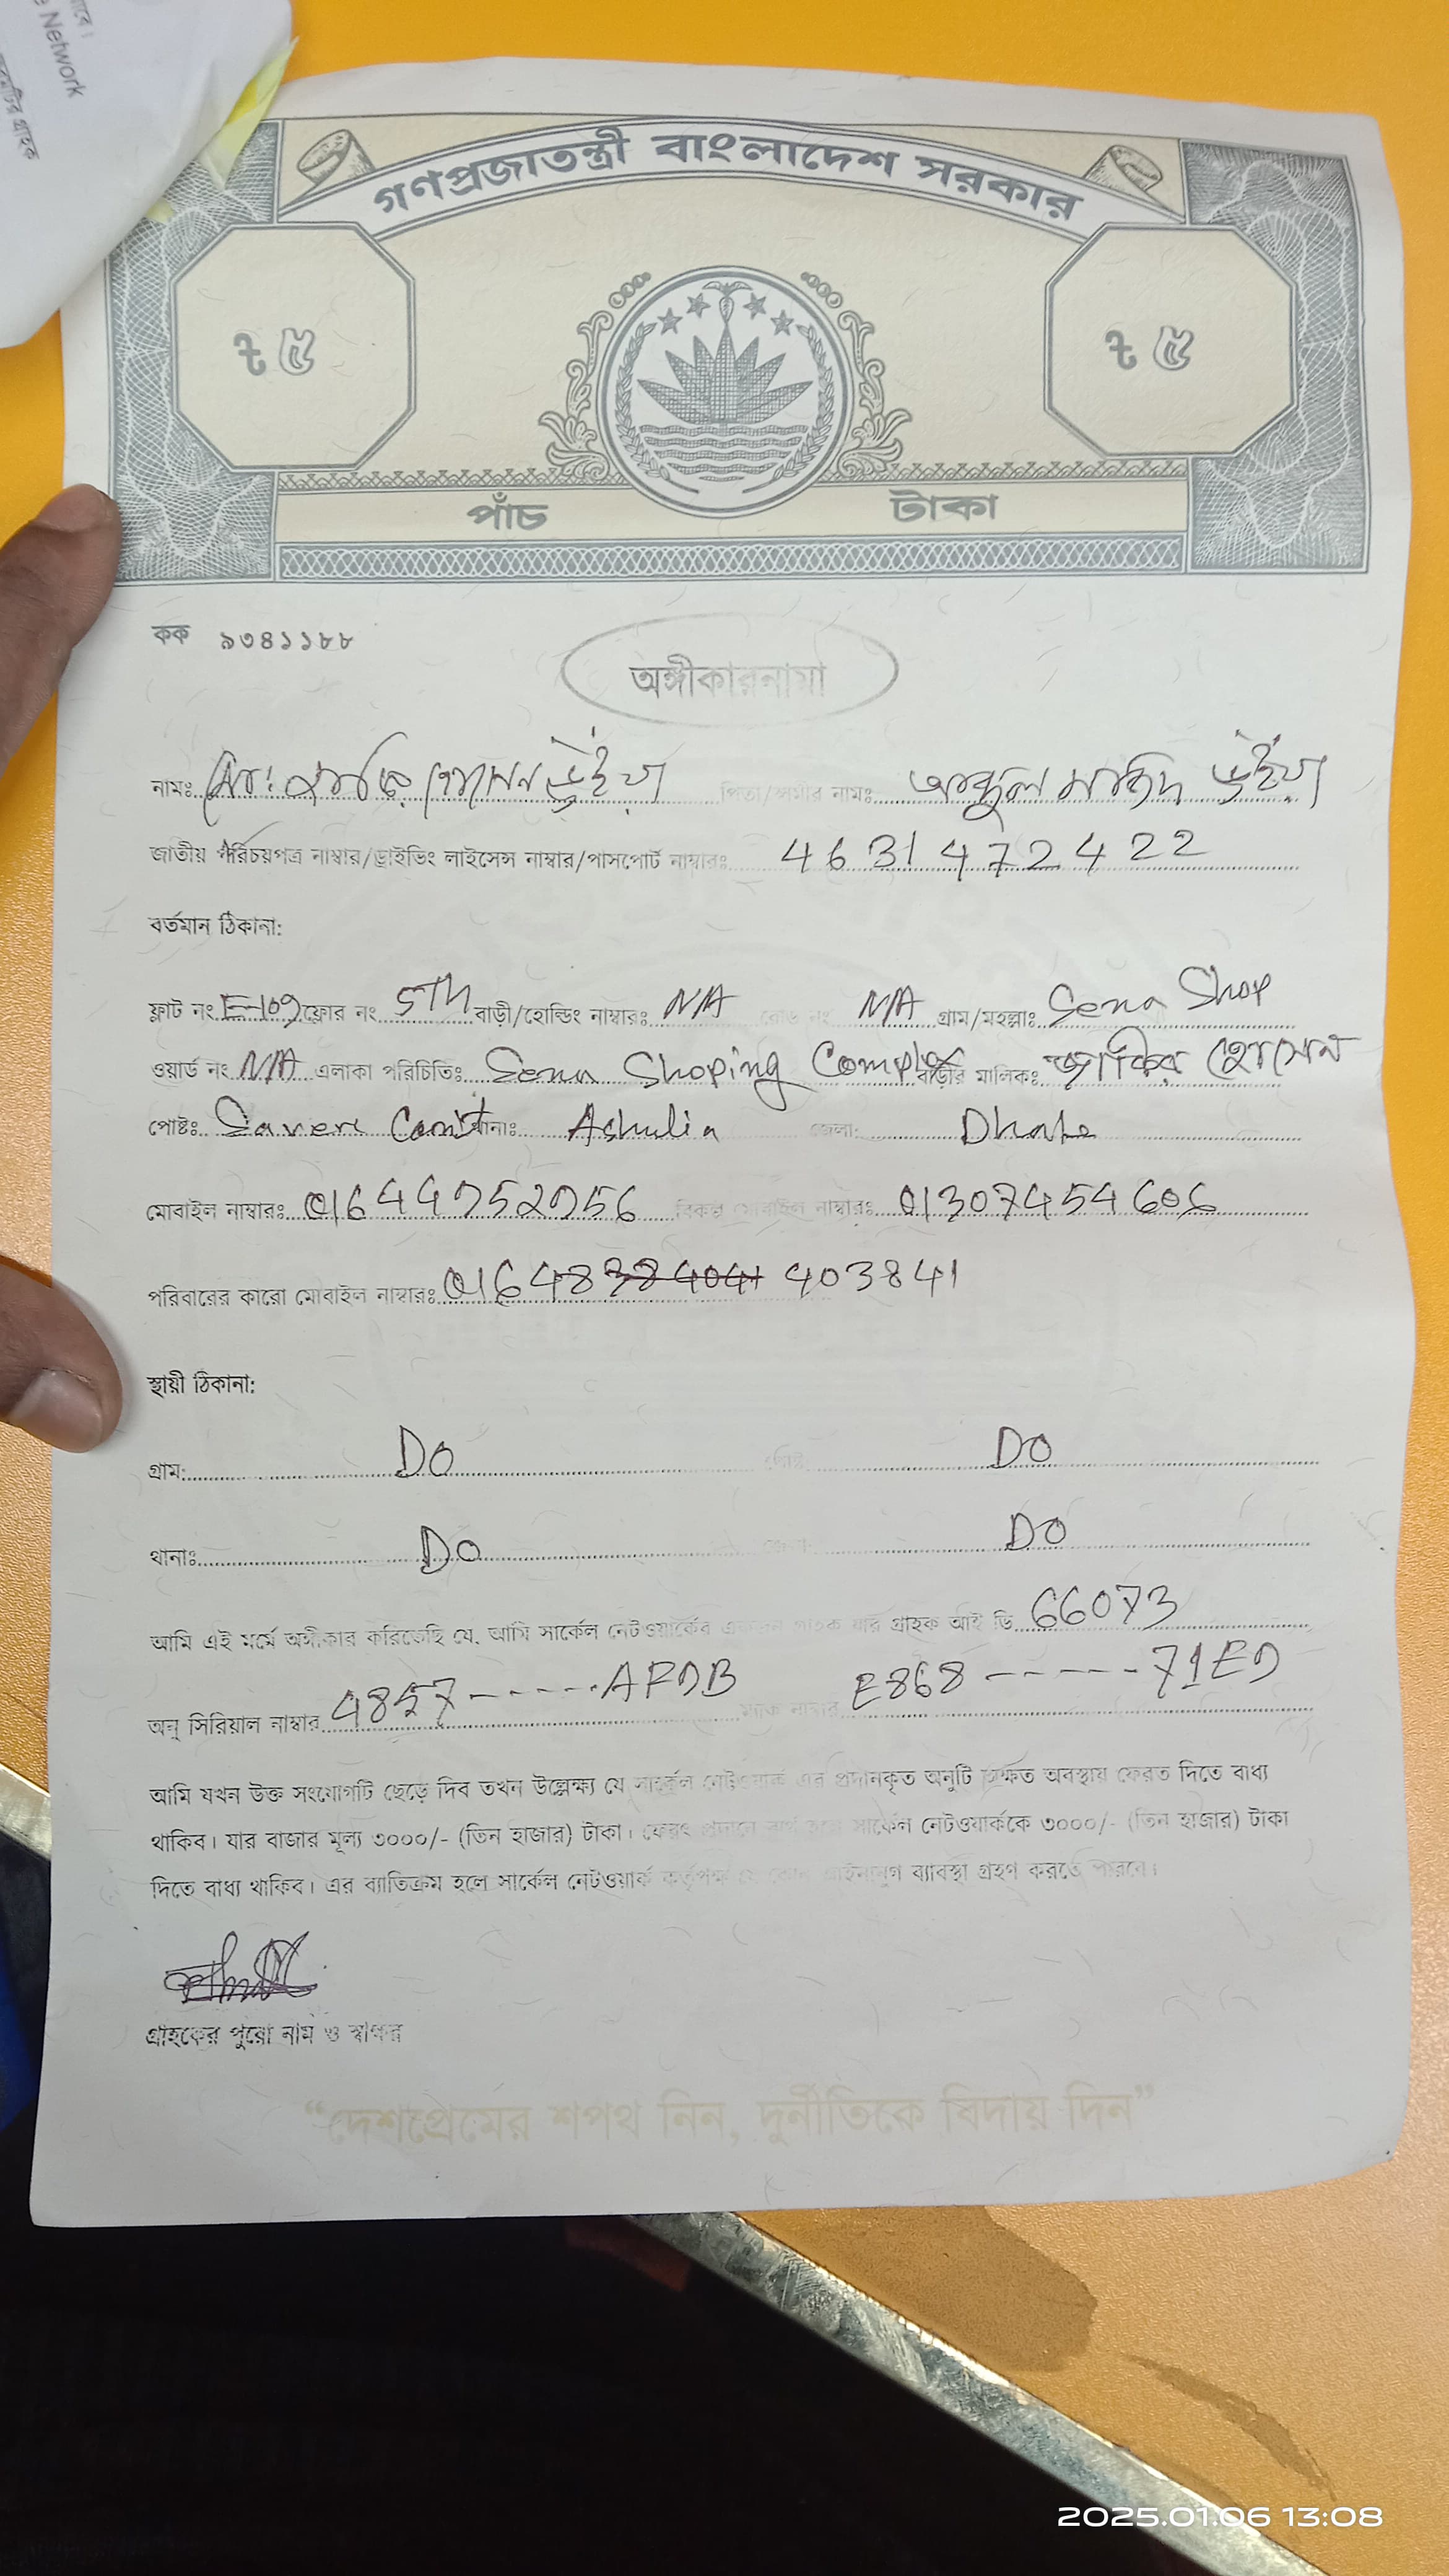 Network
গ্রাহক
গণপ্রজাতন্ত্রী বাংলাদেশ সরকার
ট ৫ ট ৫
পাঁচ টাকা
কক ৯৩৪১১৮৮
অঙ্গীকারনামা
নামঃ মোঃ হোসেন ভুঁইয়া পিতা/স্বামীর নামঃ আব্দুল মজিদ ভুঁইয়া
জাতীয় পরিচয়পত্র নাম্বার/ড্রাইভিং লাইসেন্স নাম্বার/পাসপোর্ট নাম্বারঃ 4631472422
বর্তমান ঠিকানা:
ফ্লাট নং E-109 ফ্লোর নং 5TH বাড়ী/হোল্ডিং নাম্বারঃ N/A রোড নং N/A গ্রাম/মহল্লাঃ Sena Shop
ওয়ার্ড নং N/A এলাকা পরিচিতিঃ Sena Shoping Complex বাড়ীর মালিকঃ জাকির হোসেন
পোষ্টঃ Saver Cant থানাঃ Ashulia জেলা: Dhaka
মোবাইল নাম্বারঃ 01644952956 বিকল্প মোবাইল নাম্বারঃ 01307454606
পরিবারের কারো মোবাইল নাম্বারঃ 01648 403841
স্থায়ী ঠিকানা:
গ্রাম: DO পোষ্ট DO
থানাঃ DO জেলা: DO
আমি এই মর্মে অঙ্গীকার করিতেছি যে, আমি সার্কেল নেটওয়ার্কের একজন গ্রাহক যার গ্রাহক আই ডি 66073
অনু সিরিয়াল নাম্বার 4857------AFDB ম্যাক নাম্বার E868------71ED
আমি যখন উক্ত সংযোগটি ছেড়ে দিব তখন উল্লেক্ষ্য যে সার্কেল নেটওয়ার্ক এর প্রদানকৃত অনুটি অক্ষত অবস্থায় ফেরত দিতে বাধ্য
থাকিব। যার বাজার মূল্য ৩০০০/- (তিন হাজার) টাকা। ফেরৎ প্রদানে ব্যর্থ হলে সার্কেল নেটওয়ার্ককে ৩০০০/- (তিন হাজার) টাকা
দিতে বাধ্য থাকিব। এর ব্যাতিক্রম হলে সার্কেল নেটওয়ার্ক কর্তৃপক্ষ যে কোন আইনানুগ ব্যাবস্থা গ্রহণ করতে পারবে।
গ্রাহকের পুরো নাম ও স্বাক্ষর
“দেশপ্রেমের শপথ নিন, দুর্নীতিকে বিদায় দিন”
2025.01.06 13:08